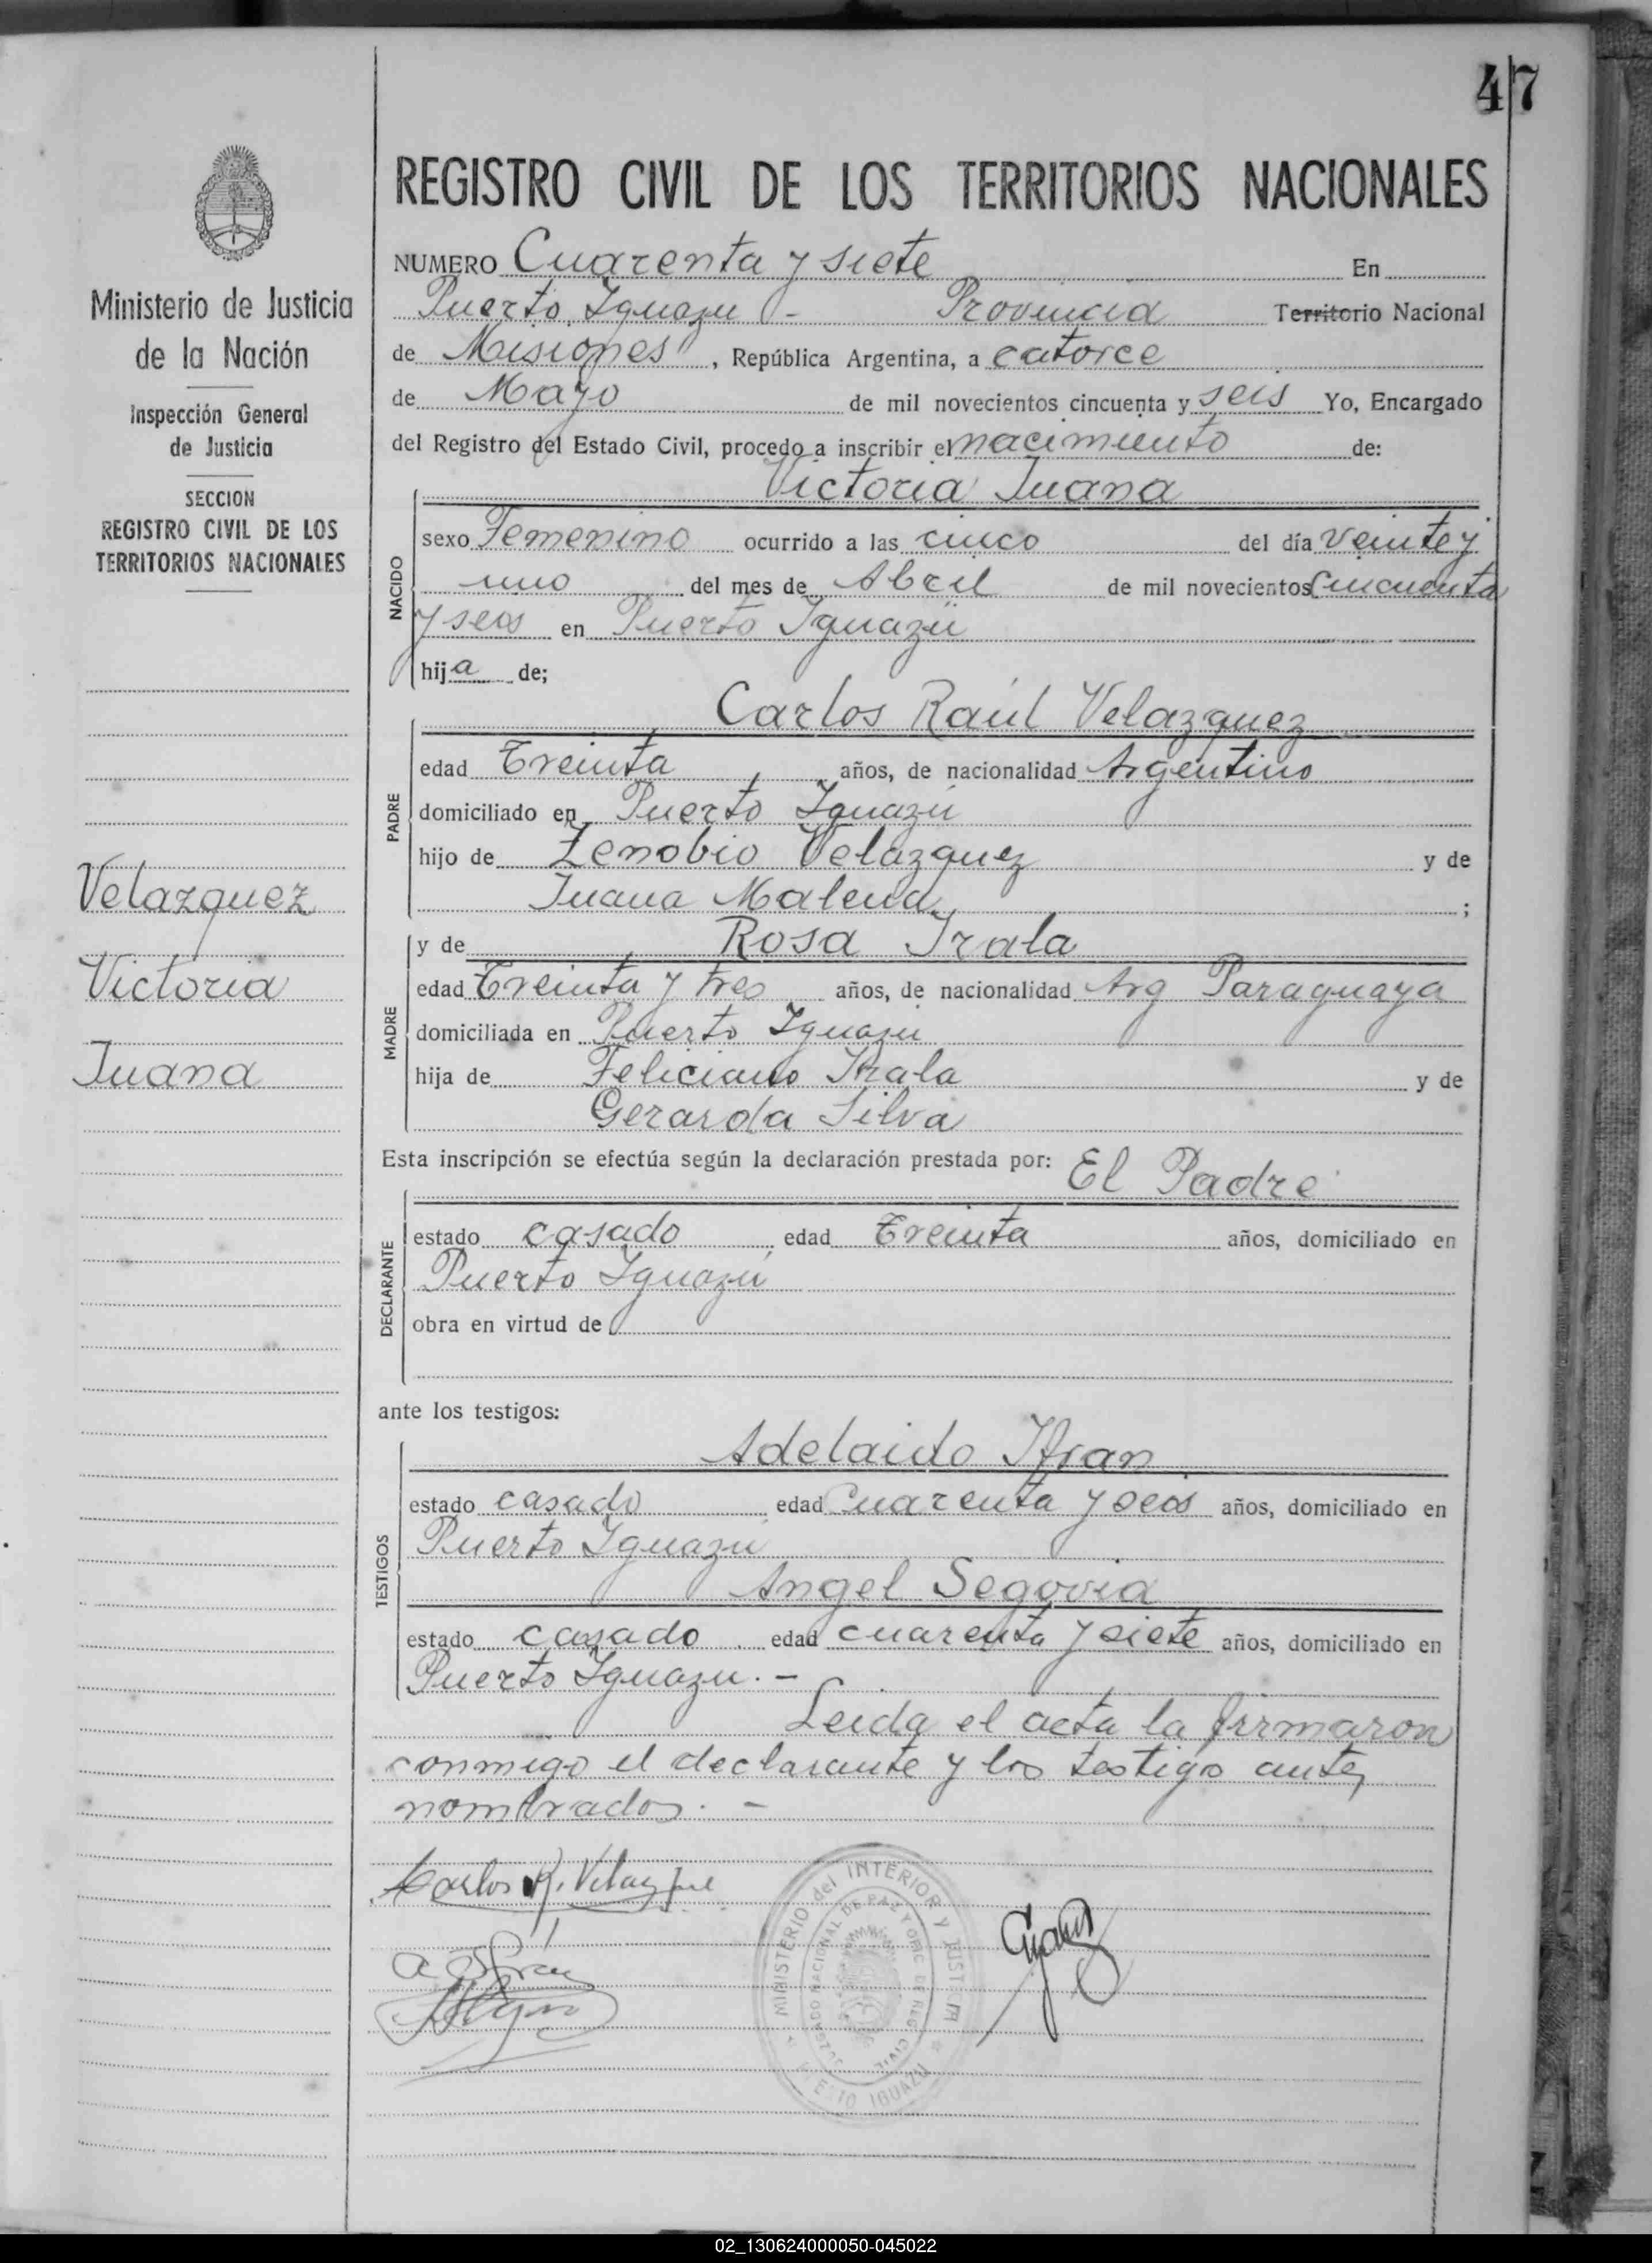 47
REGISTRO CIVIL DE LOS TERRITORIOS NACIONALES
Ministerio de Justicia
de la Nación
Inspección General
de Justicia
SECCION
REGISTRO CIVIL DE LOS
TERRITORIOS NACIONALES
Velazquez
Victoria
Juana
NUMERO Cuarenta y siete En
Puerto Iguazu - Provincia Territorio Nacional
de Misiones, República Argentina, a catorce
de Mayo de mil novecientos cincuenta y seis Yo, Encargado
del Registro del Estado Civil, procedo a inscribir el nacimiento de:
Victoria Juana
NACIDO
sexo Femenino ocurrido a las cinco del día veinte y
uno del mes de Abril de mil novecientos cincuenta
y seis en Puerto Iguazú
hija de;
Carlos Raúl Velazquez
PADRE
edad Treinta años, de nacionalidad Argentino
domiciliado en Puerto Iguazú
hijo de Zenobio Velazquez y de
Juana Malena;
MADRE
y de Rosa Irala
edad Treinta y tres años, de nacionalidad Arg Paraguaya
domiciliada en Puerto Iguazú
hija de Feliciano Irala y de
Gerarda Silva
Esta inscripción se efectúa según la declaración prestada por: El Padre
DECLARANTE
estado casado edad Treinta años, domiciliado en
Puerto Iguazú
obra en virtud de
ante los testigos:
Adelaido Ifran
TESTIGOS
estado casado edad Cuarenta y seis años, domiciliado en
Puerto Iguazú
Angel Segovia
estado casado edad cuarenta y siete años, domiciliado en
Puerto Iguazu. -
Leida el acta la firmaron
conmigo el declarante y los testigo ante
nombrados. -
Carlos R. Velazque
MINISTERIO del INTERIOR y JUSTICIA
IGUAZU
02_130624000050-045022